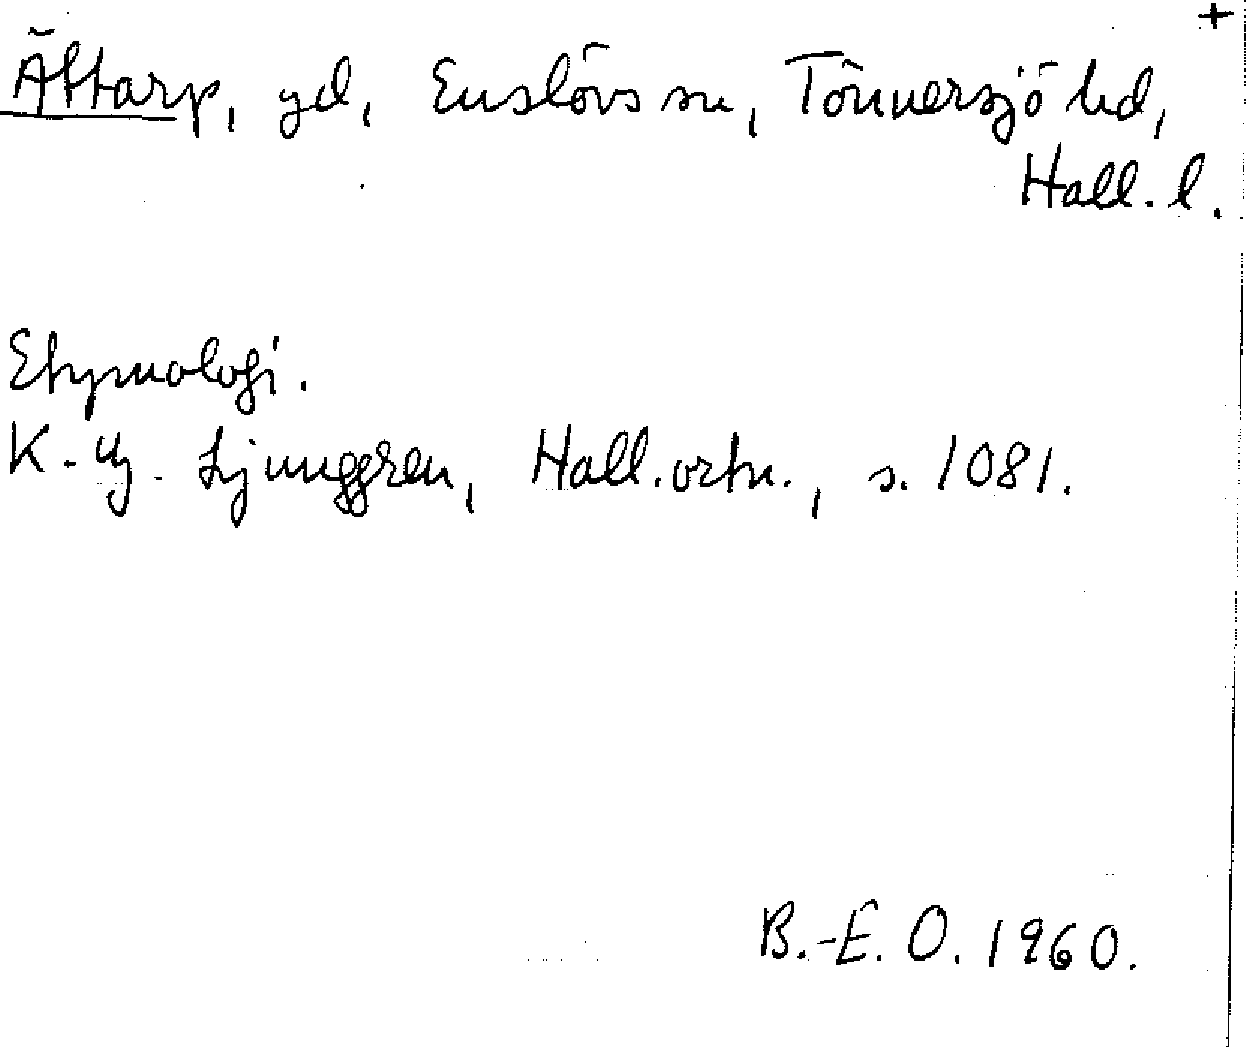 +
Ättarp, gd, Enslövs sn, Tönnersjö hd,
Hall. l.
Etymologi.
K.-G. Ljunggren, Hall. ortn., s. 1081.
B.-E. O. 1960.